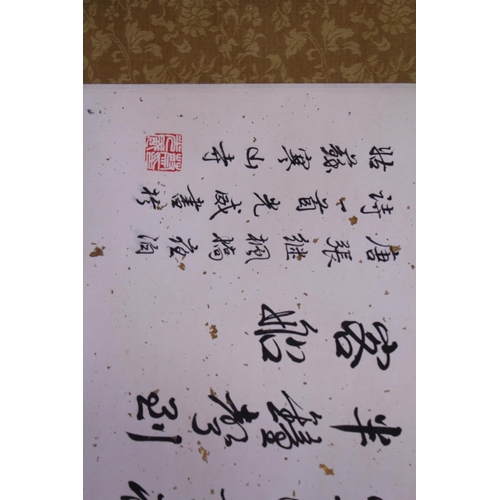 半鐘聲到
客船
唐張继楓橋夜泊
诗一首光威書於
姑蘇寒山寺